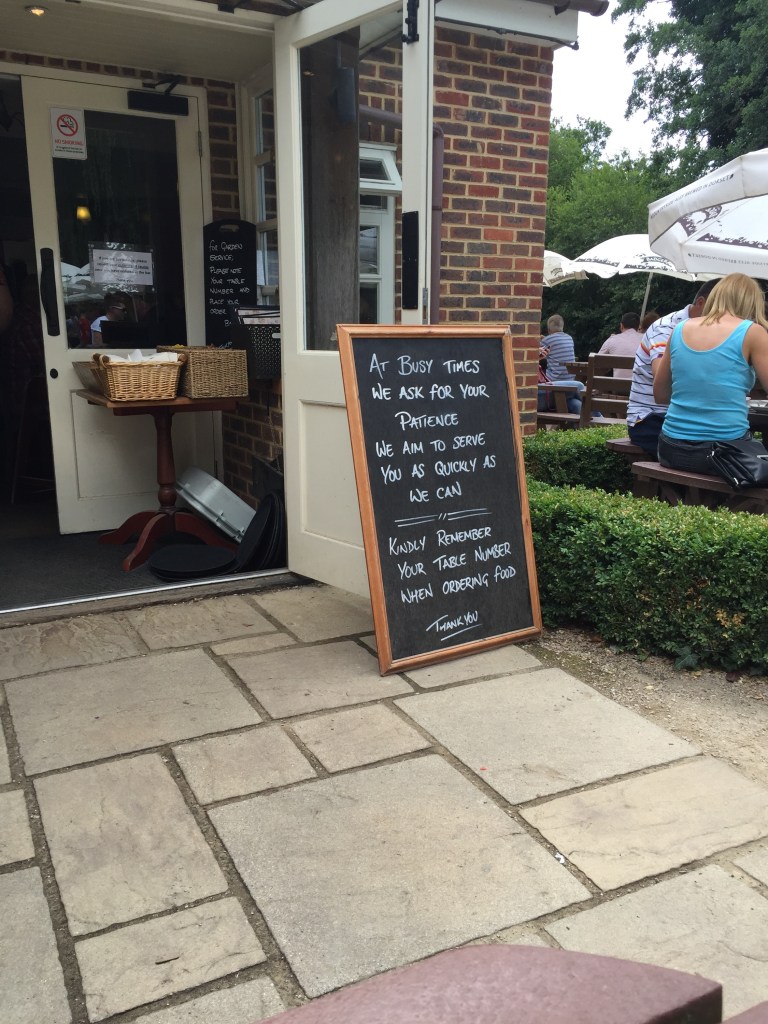 NO SMOKING
FOR GARDEN
SERVICE,
PLEASE NOTE
YOUR TABLE
NUMBER AND
PLACE YOUR
ORDER
AT BUSY TIMES
WE ASK FOR YOUR
PATIENCE
WE AIM TO SERVE
YOU AS QUICKLY AS
WE CAN
KINDLY REMEMBER
YOUR TABLE NUMBER
WHEN ORDERING FOOD
THANK YOU